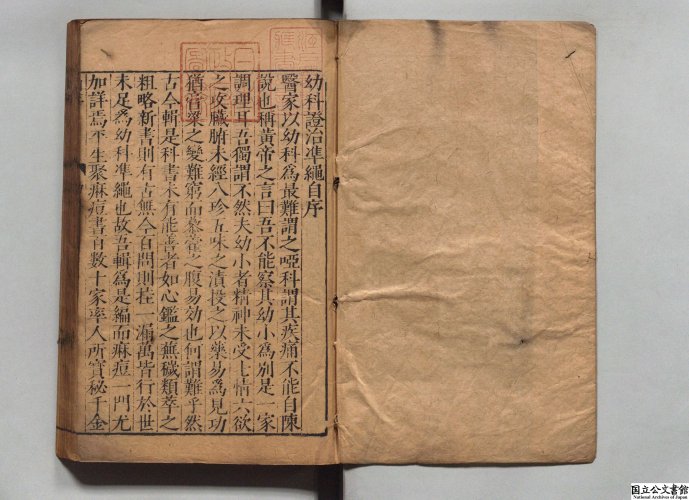 幼科證治凖繩自序
醫家以幼科爲最難謂之啞科謂其疾痛不能自陳
說也稱黃帝之言曰吾不能察其幼小爲別是一家
調理耳吾獨謂不然夫幼小者精神未受七情六欲
之攻臟腑未經八珍五味之漬投之以藥易爲見功
猶膏粱之變難窮而藜藿之腹易効也何謂難乎然
古今輯是科書未有能善者如心鑑之蕪穢類萃之
粗略新書則有古無今百問則挂一漏萬皆行於世
未足爲幼科凖繩也故吾輯爲是編而麻痘一門尤
加詳焉平生聚麻痘書百數十家率人所寳秘千金
国立公文書館
National Archives of Japan